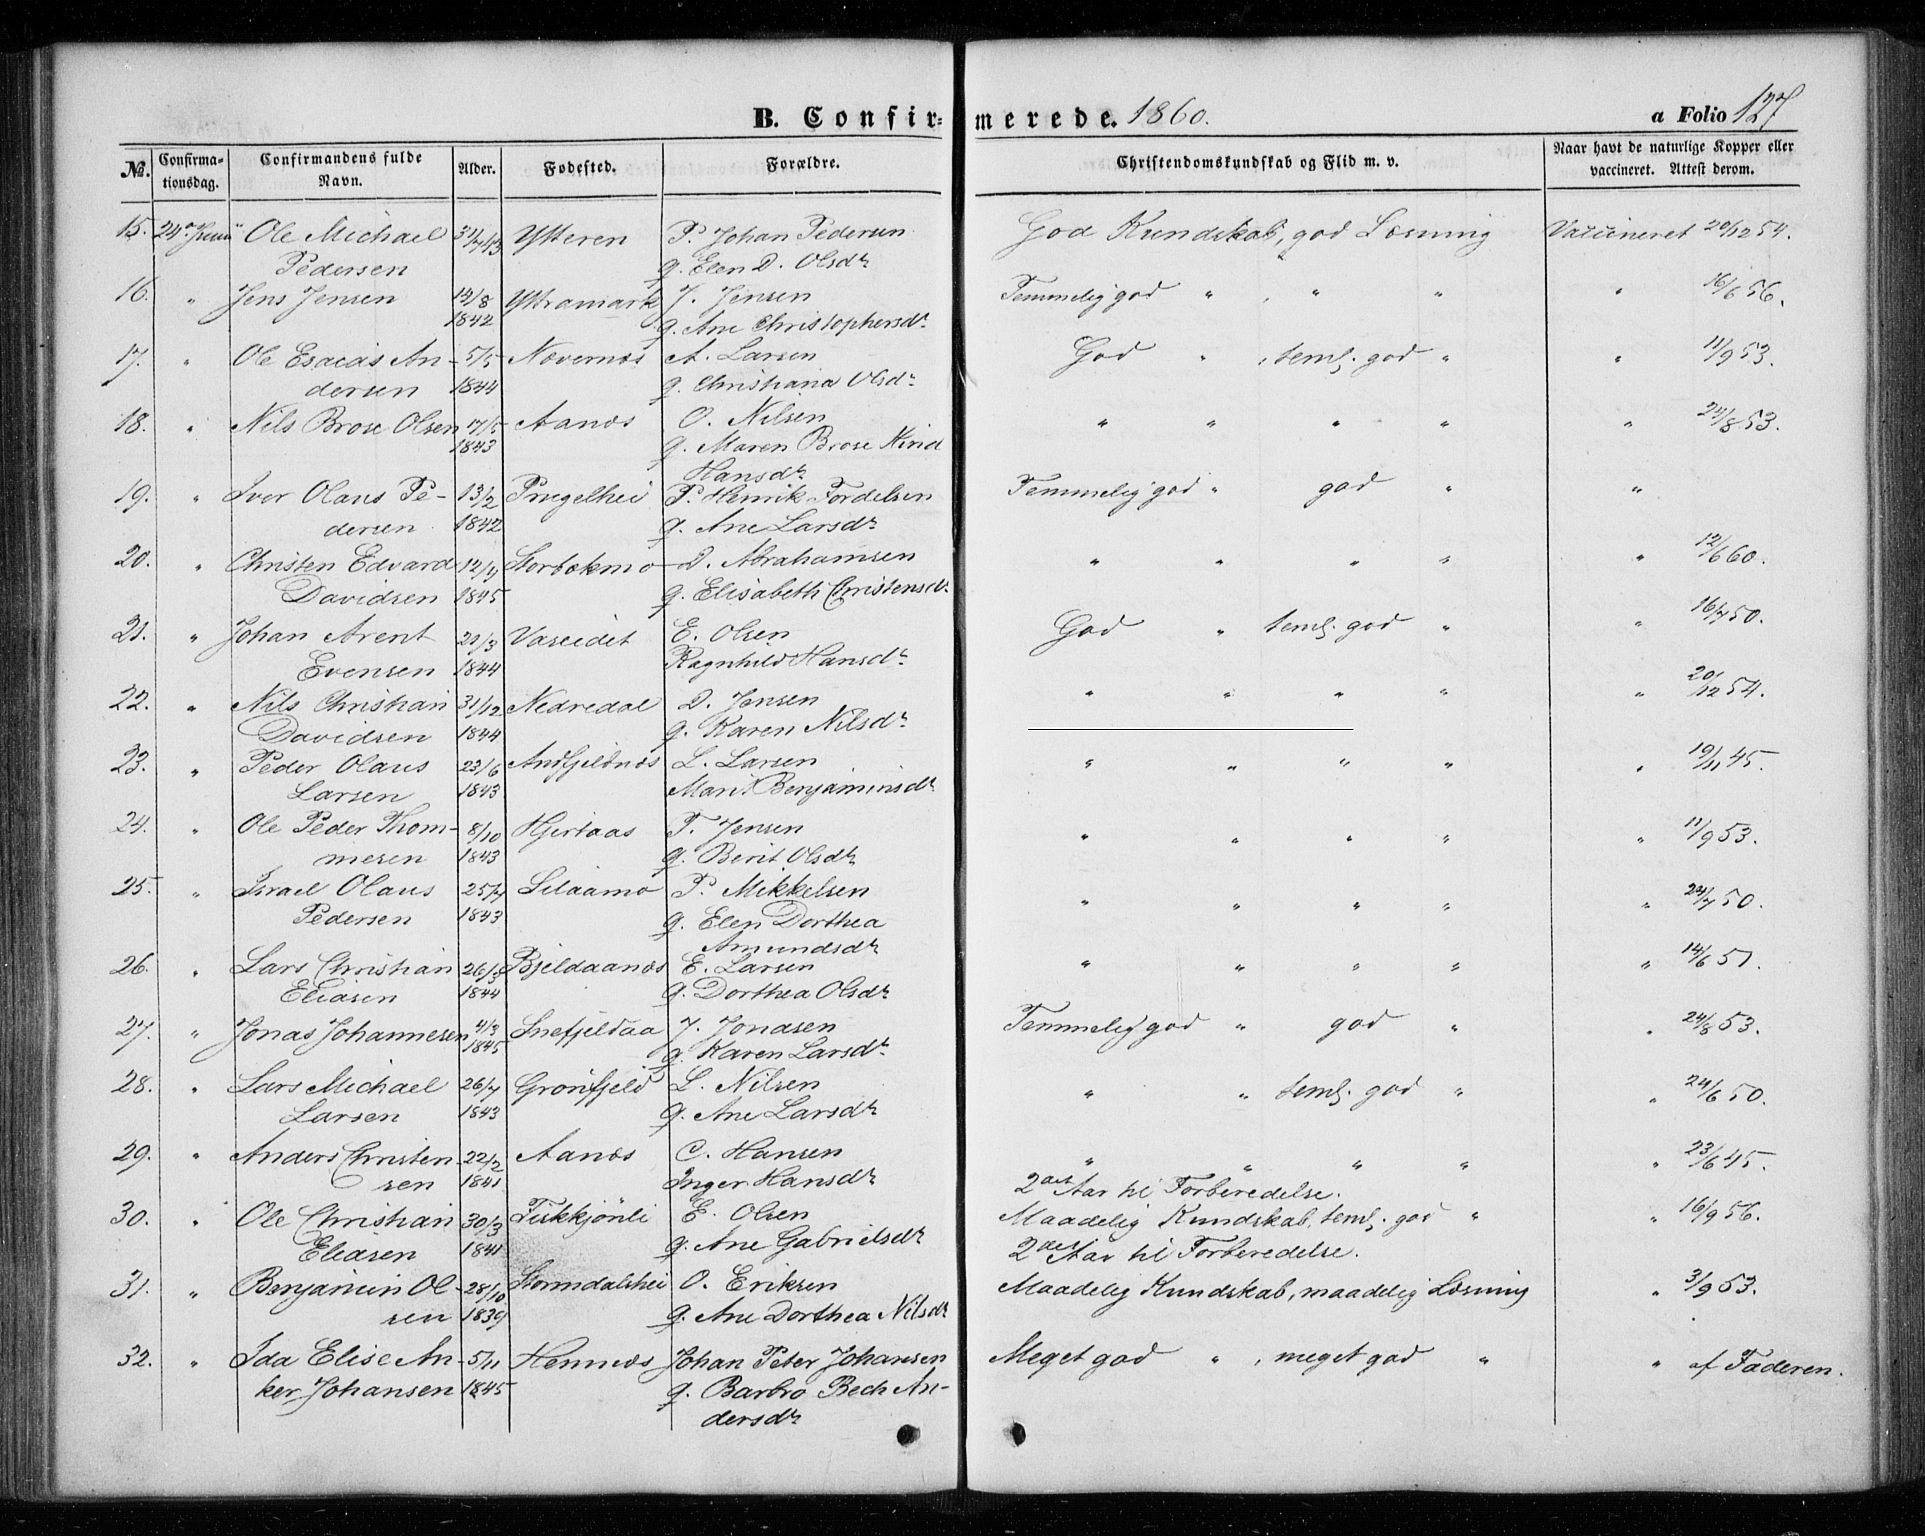 B. Confirmerede. 1860. a Folio 127
No. Confirmationsdag. Confirmandens fulde Navn. Alder. Fødested. Forældre. Christendomskundskab og Flid m. v. Naar havt de naturlige Kopper eller vaccineret. Attest derom.
15. 24de Juni Ole Michael 31/7 43 Ytteren P. Johan Pedersen God Kundskab, god Læsning Vaccineret 20/12 54.
Pedersen g. Elen D. Olsdr
16. " Jens Jensen 12/8 Yttramark J. Jensen Temmelig god " , " " " 16/6 56.
1842 g. Ane Christophersdr
17. " Ole Esaias An- 5/5 Nævernæs A. Larsen God " , teml. god " " 11/9 53.
dersen 1844 g. Christiana Olsdr
18. " Nils Brose Olsen 17/5 Aanæs O. Nilsen " " " " " 24/8 53.
1843 g. Maren Brose
Hansdr
19. " Iver Olaus Pe- 13/2 Prugelhei P. Henrik Tordelsen Temmelig god " god " "
dersen 1842 g. Ane Larsdr
20. " Christen Edvard 12/4 Storbækmo D. Abrahamsen " " " " " 12/6 60.
Davidsen 1845 g. Elisabeth Christensdr
21. " Johan Arent 21/3 Vaseidet E. Olsen God " teml. god " " 16/7 50.
Evensen 1844 Ragnhild Hansdr
22. " Nils Christian 31/12 Nedredal D. Jensen " " " " " 20/12 54.
Davidsen 1844 g. Karen Nilsdr
23. " Peder Olaus 23/6 Andfjeldnæs L. Larsen " " " " " 19/11 45.
Larsen 1843 Marit Benjaminsdr
24. " Ole Peder Thom- 8/10 Hjertaas T. Jensen " " " " " 11/9 53.
mesen 1843 g. Berit Olsdr
25. " Israel Olaus 25/7 Silaamo P. Mikkelsen " " " " " 24/7 50.
Pedersen 1843 g. Elen Dorthea
Amundsdr
26. " Lars Christian 26/3 Bjeldaanæs E. Larsen " " " " " 14/6 51.
Eliasen 1844 g. Dorthea Olsdr
27. " Jonas Johannesen 4/3 Snefjeldaa J. Jonasen Temmelig god " god " " 24/8 53.
1845 g. Karen Larsdr
28. " Lars Michael 26/7 Grønfjeld L. Nilsen " " teml. god " " 24/6 50.
Larsen 1843 g. Ane Larsdr
29. " Anders Christen- 22/2 Aanæs C. Hansen " " " " " 23/6 45.
sen 1841 Inger Hansdr 2det Aar til Forberedelse.
30. " Ole Christian 30/3 Fiskkjønli E. Olsen Maadelig Kundskab, teml. god " " 16/9 56.
Eliasen 1841 g. Ane Gabrielsdr 2det Aar til Forberedelse.
31. " Benjamin Ol- 28/10 Stormdalshei O. Eriksen Maadelig Kundskab, maadelig Læsning " 3/9 53.
sen 1839 g. Ane Dorthea Nilsdr
32. " Ida Elise An- 5/11 Hemnæs Johan Peter Johansen Meget god " , meget god " " af Faderen.
ker Johansen 1845 g. Barbro Bech An-
dersdr